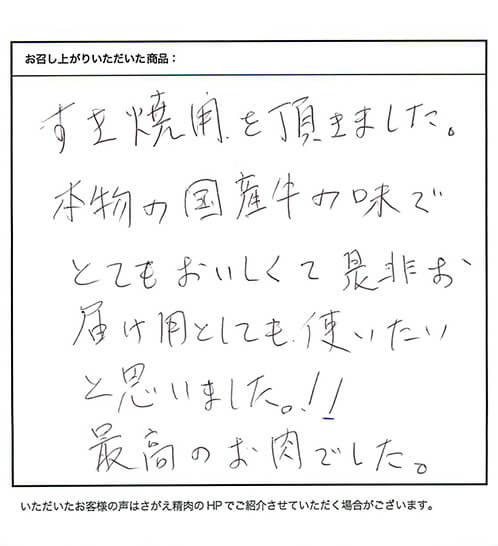 お召し上がりいただいた商品：
すき焼用を頂きました。
本物の国産牛の味で
とてもおいしくて是非お
届け用としても使いたい
と思いました。!!
最高のお肉でした。
いただいたお客様の声はさがえ精肉のHPでご紹介させていただく場合がございます。